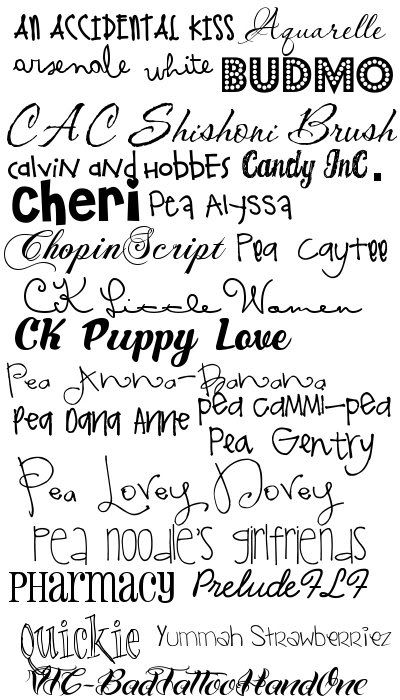 AN ACCIDENTAL KISS Aquarelle
arsenale white BUDMO
CAC Shishoni Brush
calvin and Hobbes Candy Inc.
cheri Pea Alyssa
ChopinScript Pea Caytee
CK Little Women
CK Puppy Love
Pea Anna-Banana
Pea Dana Anne pea cammi-pea
Pea Gentry
Pea Lovey Dovey
pea noodle's girlfriends
PHARMACY PreludeFLF
Quickie Yummah Strawberriez
VTC-BadTattooHandOne